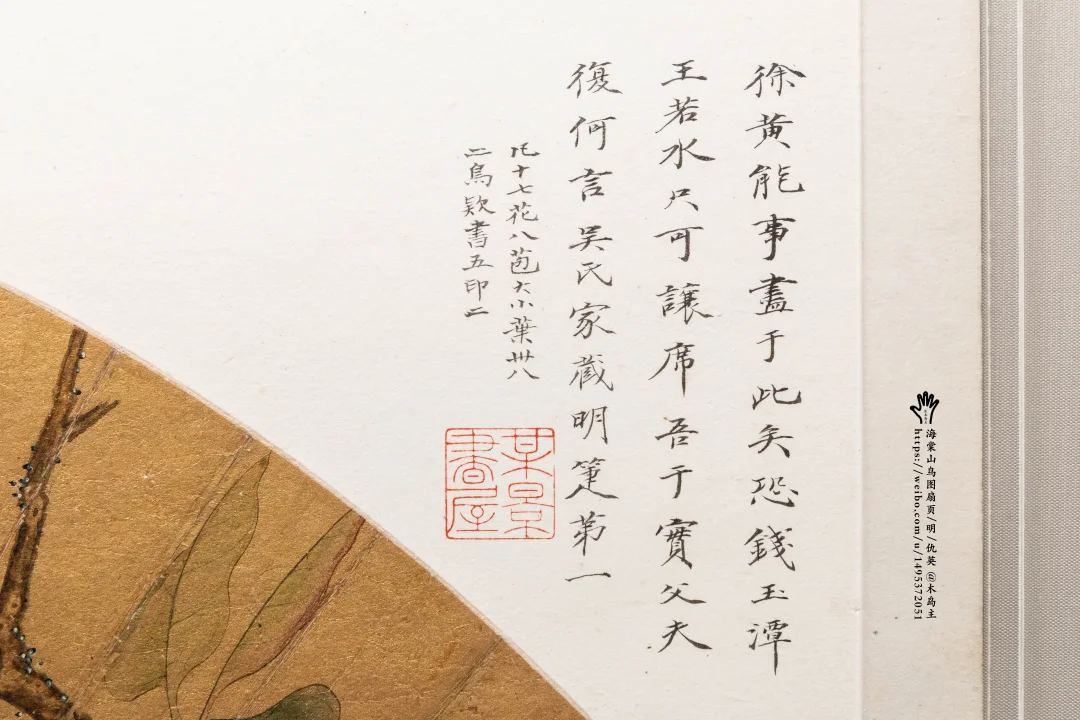 徐黄能事盡于此矣恐錢玉潭
王若水尺可讓席吾于實父夫
復何言吴氏家藏明箑第一
十七花八苞大小葉卅八
二鳥款書五印二
某景
書屋
海棠山鸟图扇页/明/仇英 @木岛主
https://weibo.com/u/1495372051